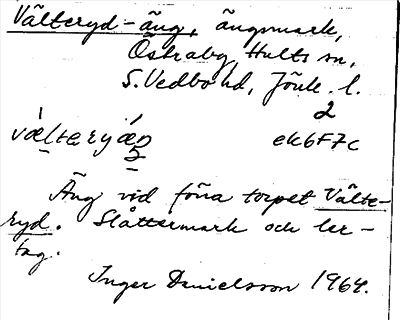 Välteryd-äng, ängsmark,
Östraby, Hults sn,
S. Vedbo hd, Jönk. l.
2
vælteryæŋ ek6F7c
5
Äng vid förra torpet Välte-
ryd. Slåttermark och ler-
tag.
Inger Danielsson 1964.